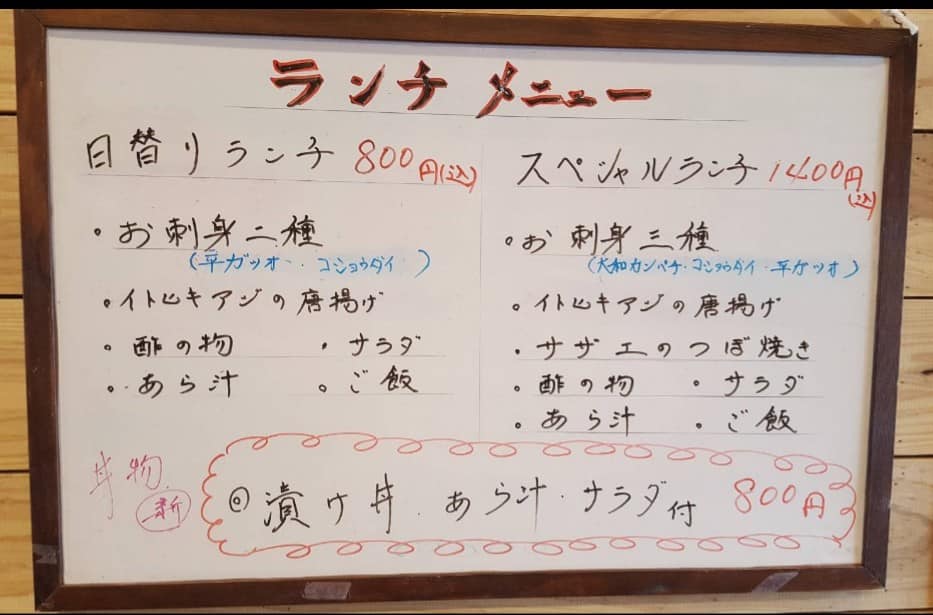 ランチ メニュー
日替りランチ 800円(込)
・お刺身二種
(平ガツオ・コショウダイ)
・イトヒキアジの唐揚げ
・酢の物 ・サラダ
・あら汁 ・ご飯
スペシャルランチ 1400円(込)
・お刺身三種
(大和カンパチ・コショウダイ・平ガツオ)
・イトヒキアジの唐揚げ
・サザエのつぼ焼き
・酢の物 ・サラダ
・あら汁 ・ご飯
丼物
新
◎漬け丼・あら汁・サラダ付 800円